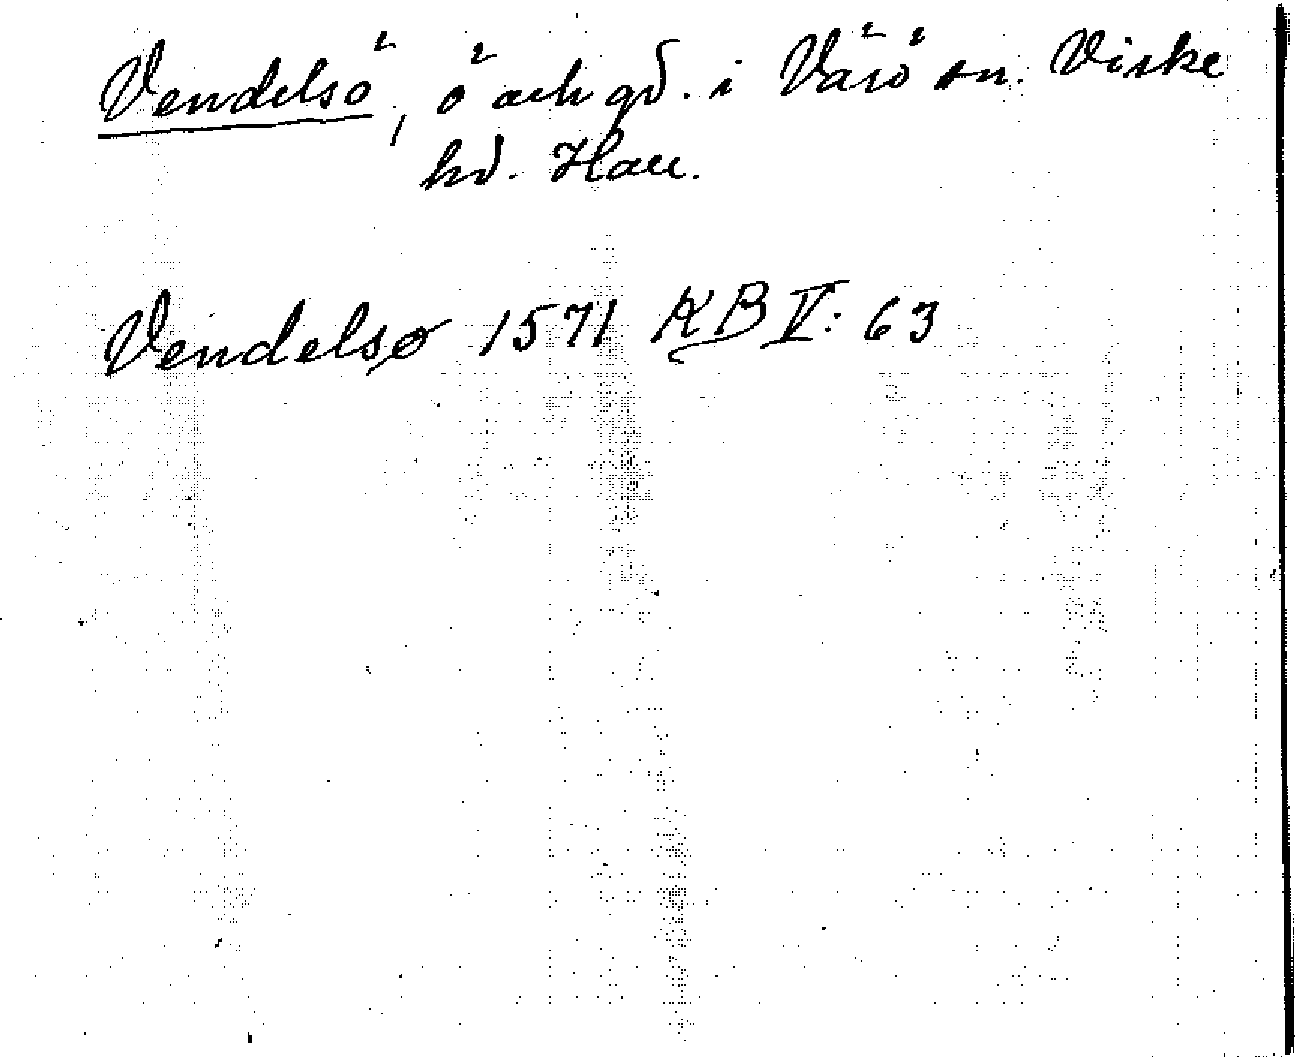 Vendelsö, ö och gd. i Värö sn. Viske
hd. Hall.
Vendelsø 1571 KB V: 63